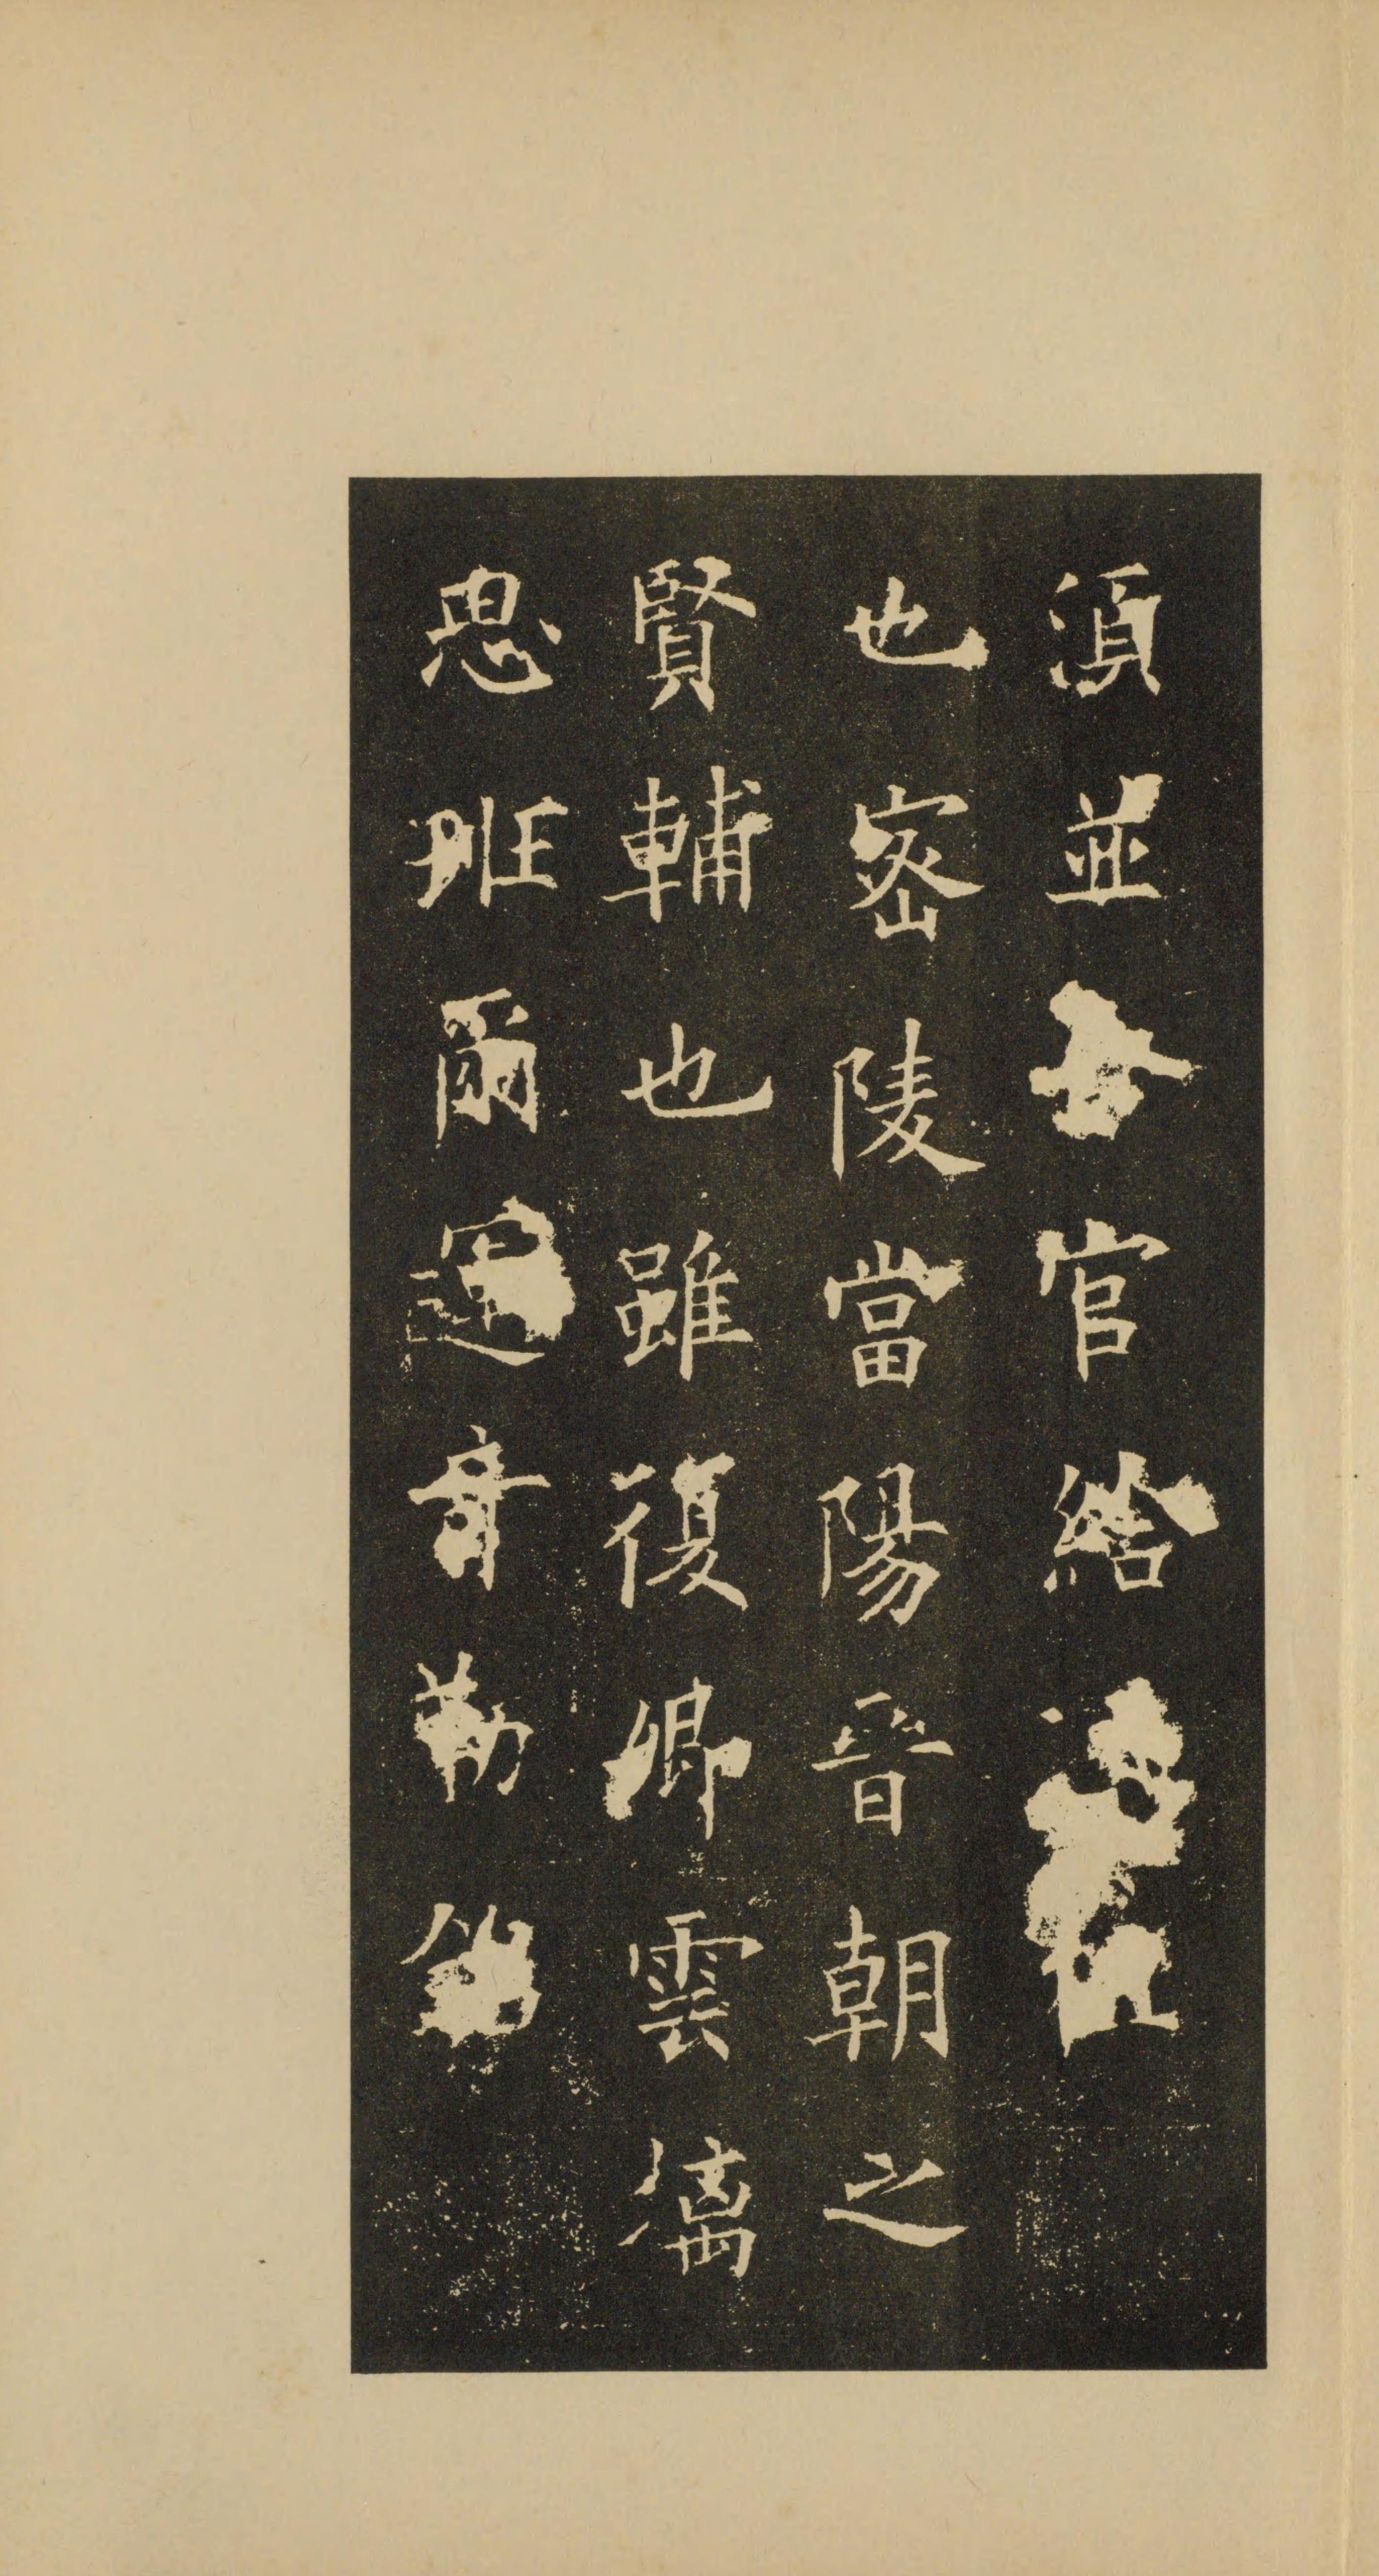 湏並官給
也密陵當陽晉朝之
賢輔也雖復卿雲
思班爾運勒